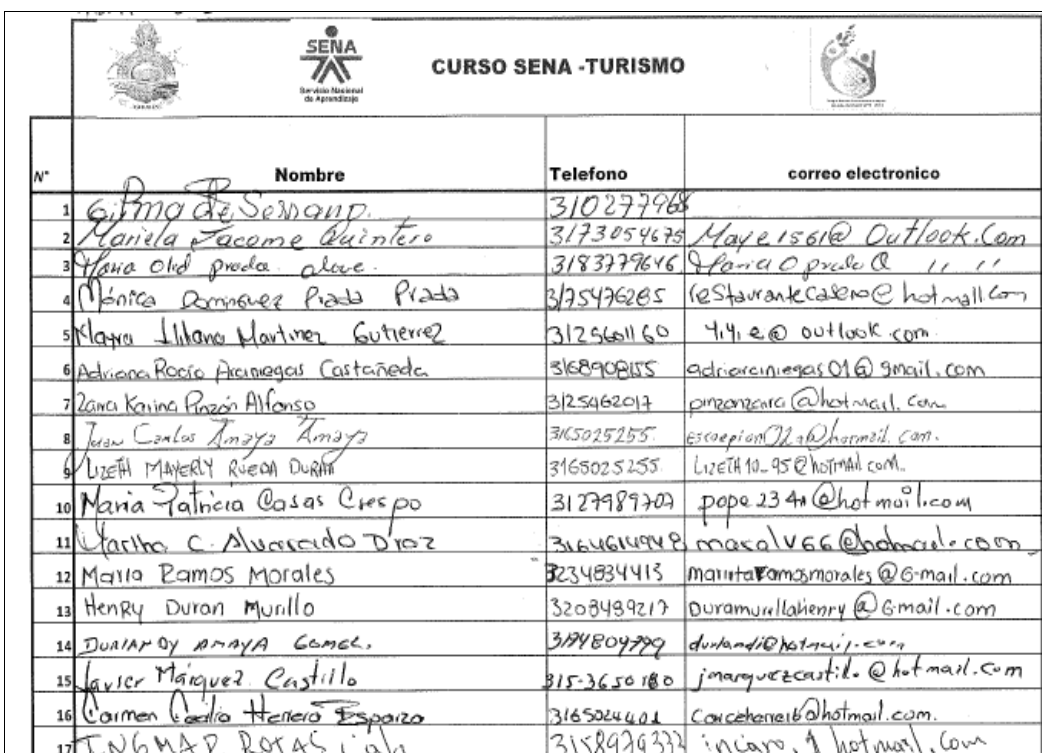 SENA
Servicio Nacional
de Aprendizaje
CURSO SENA -TURISMO
N° Nombre Telefono correo electronico
1 de Serrano. 310277968
2 Mariela Jacome Quintero 3173054675 Maye1561@ Outlook.Com
3 Maria prada 3183779646 Maria O prada @ " "
4 Mónica Dominguez Prada Prada 3175476285 restaurantecasero@ hotmail.com
5 Klayra Liliana Martinez Gutierrez 3125601160 yiyi.e@ outlook.com.
6 Adriana Rocío Araniegas Castañeda 3168908155 adriarciniegas01@gmail.com
7 Zaira Karina Pinzón Alfonso 3125462017 pinzonzaira@hotmail.com
8 Juan Carlos Amaya Amaya 3165025255.
9 LIZETH MAYERLY RUEDA DURAN 3165025255. LIZETH10_95@hotmail.com.
10 Maria Patricia Casas Crespo 3127989707 pope234a@hotmail.com
11 Martha C. Alvarado Diaz 3164614948 maralv66@hotmail.com
12 Maria Ramos Morales 3234834413 mariitaramosmorales@G-mail.com
13 HenRy Duran Murillo 3208489217 Duramurillahenry@Gmail.com
14 DURLANDY AMAYA Gomez. durlandi@hotmail.com
15 Javier Márquez Castillo 315-3650180 jmarquezcastillo@hotmail.com
16 Carmen Cecilia Herrera Esparza 3165024401
17 ROJAS 3158979333